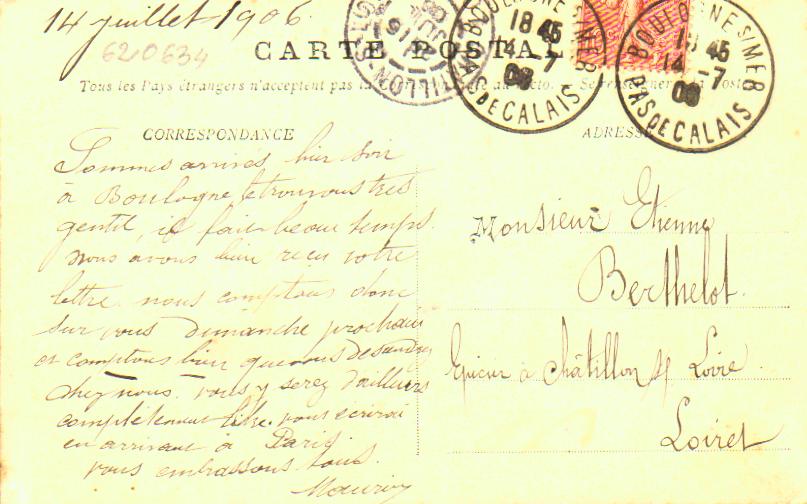 14 juillet 1906
620634
CARTE POSTALE
Tous les Pays étrangers n'acceptent pas la au recto. Se renseigner à la Poste
BOULOGNE S/MER
18 45
14 -7
06
PAS DE CALAIS
BOULOGNE S/MER
18 45
14 -7
06
PAS DE CALAIS
CORRESPONDANCE
ADRESSE
Sommes arrivés hier soir
à Boulogne le trouvons très
gentil, il fait beau temps.
nous avons bien reçu votre
lettre. nous comptons donc
sur vous Dimanche prochain
et comptons bien que vous descendrez
chez nous. vous y serez d'ailleurs
complètement libre. vous écrirai
en arrivant à Paris.
vous embrassons tous.
Monsieur Etienne
Berthelot.
Epicier à Châtillon s/ Loire
Loiret